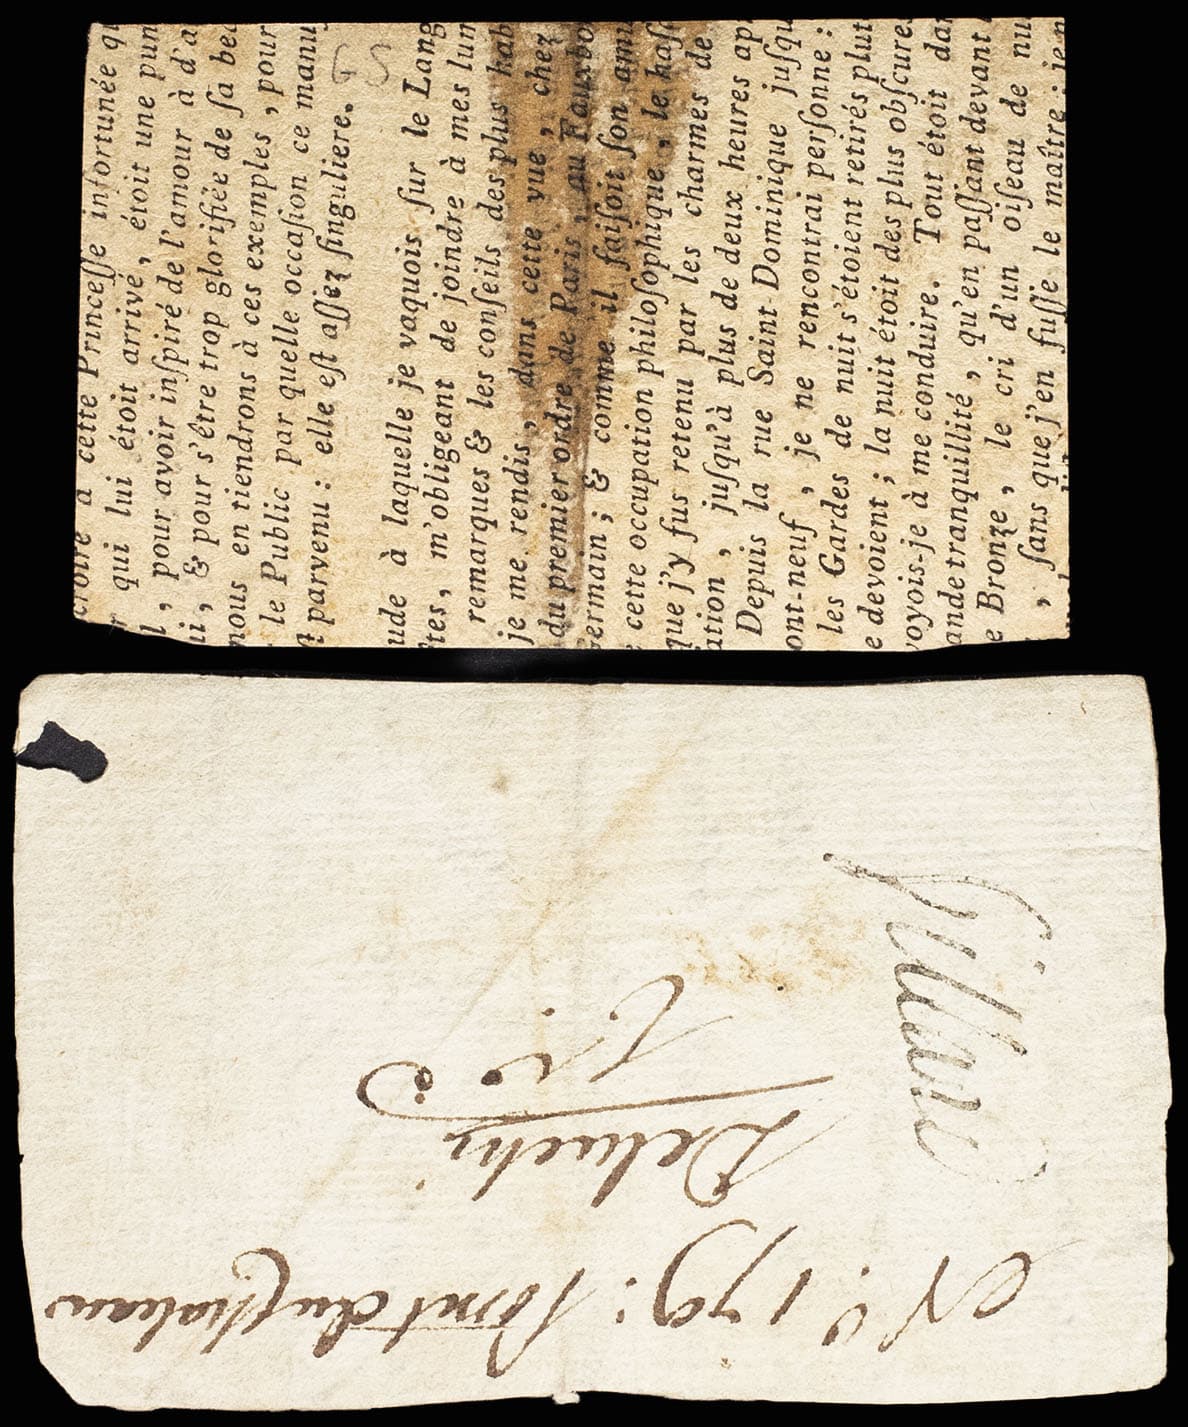 croire à cette Princesse infortunée qu
r qui lui étoit arrivé, étoit une pun
l, pour avoir inſpiré de l'amour à d'a
ui, & pour s'être trop glorifiée de ſa bea
nous en tiendrons à ces exemples, pour
le Public par quelle occaſion ce manuſ
ſt parvenu : elle eſt aſſez ſinguliere.
GS
ude à laquelle je vaquois ſur le Lang
ſtes, m'obligeant de joindre à mes lum
remarques & les conſeils des plus hab
je me rendis, dans cette vue, chez
du premier ordre de Paris, au Fauxbo
Germain ; & comme il faiſoit ſon amu
e cette occupation philoſophique, le haſa
que j'y fus retenu par les charmes de
ation, juſqu'à plus de deux heures apr
Depuis la rue Saint Dominique juſqu
ont-neuf, je ne rencontrai perſonne :
les Gardes de nuit s'étoient retirés plut
e devoient ; la nuit étoit des plus obſcures
voyois-je à me conduire. Tout étoit dan
ande tranquillité, qu'en paſſant devant l
e Bronze, le cri d'un oiſeau de nu
, ſans que j'en fuſſe le maître ; je n
Gillard
N.° 179:
Deluchy